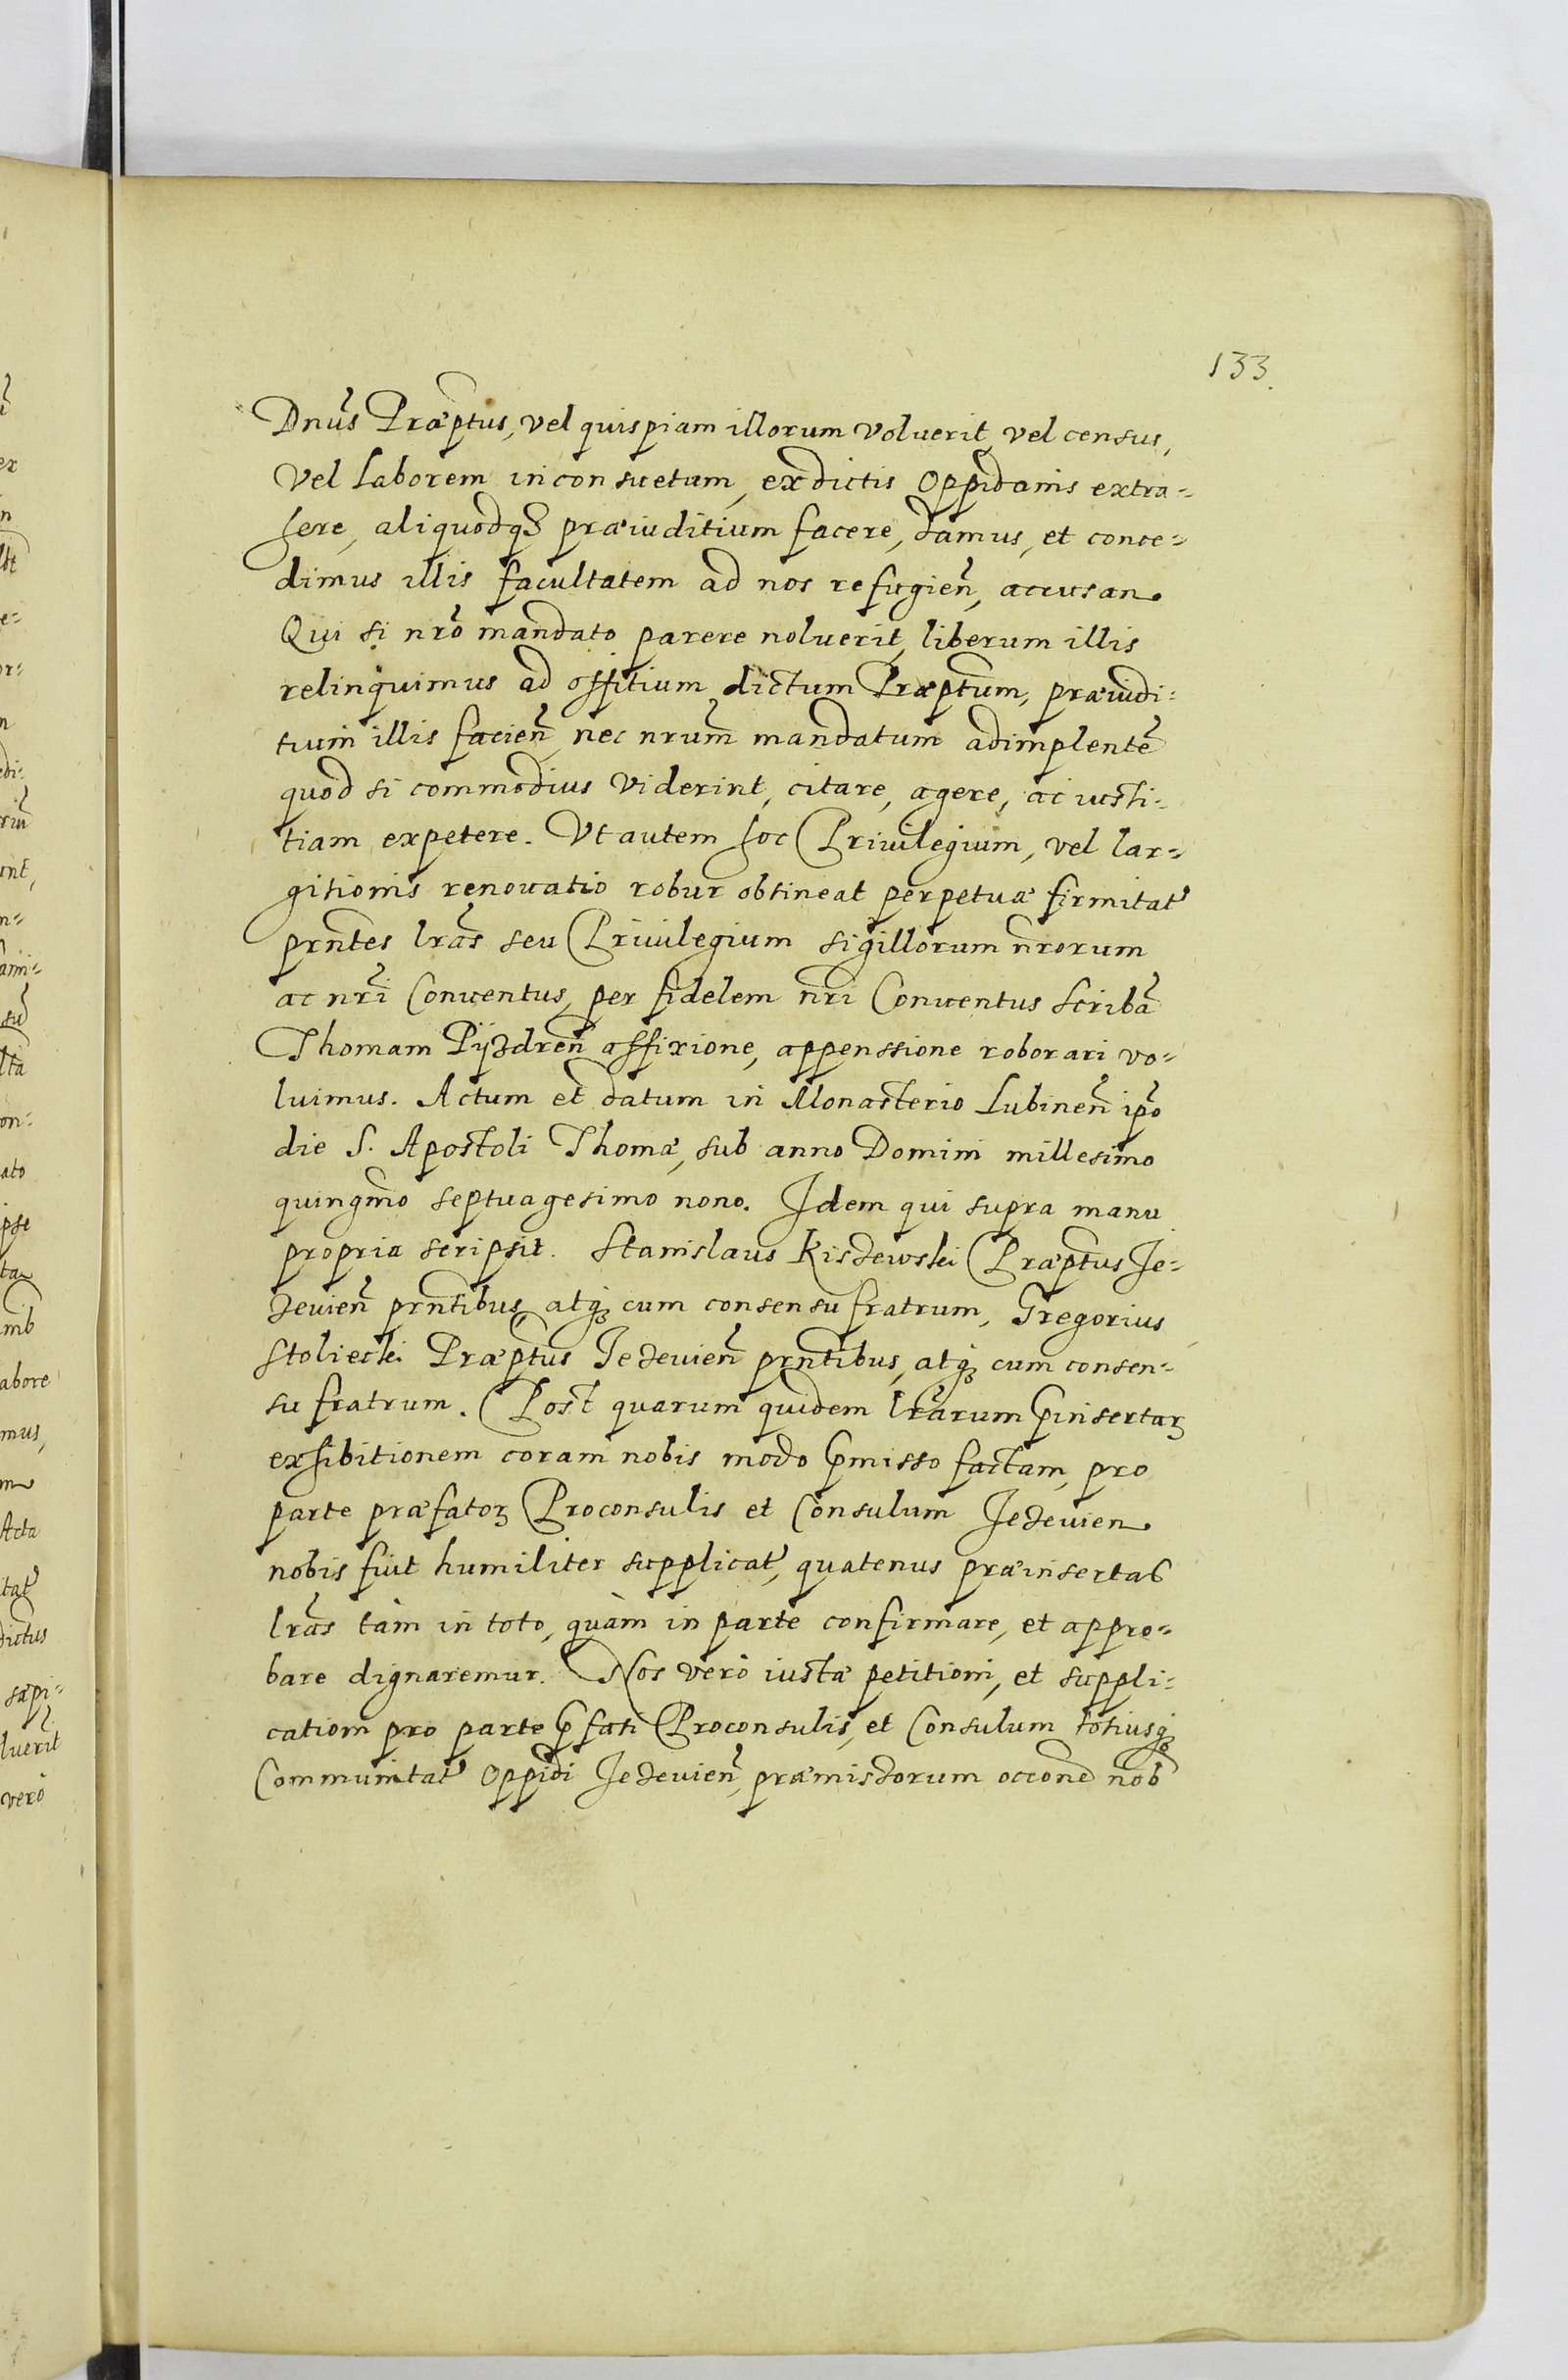 133.
Dnus Præptus, vel quispiam illorum voluerit, vel census,
vel laborem inconsuetam, ex dictis Oppidanis extra-
here, aliquodq3 præiuditium facere, damus, et conce-
dimus illis facultatem ad nos refugien, accusan.
Qui si nro mandato parere noluerit, liberum illis
relinquimus ad offitium dictum Præptum, præiudi-
tium illis facien, nec nrum mandatum adimplente
quod si commodius viderint, citare, agere, ac iusti-
tiam expetere. Ut autem hoc Priuilegium, vel lar-
gitionis renouatio robur obtineat perpetuæ firmitat
prntes lras seu Priuilegium sigillorum nrorum
ac nri Conuentus, per fidelem nri Conuentus scriba
Thomam Pÿzdren affixione, appenssione roborari vo-
luimus. Actum et datum in Monasterio Lubinen ipo
die S. Apostoli Thomæ, sub anno Domini millesimo
quingmo septuagesimo nono. Idem qui supra manu
propria scripsit. Stanislaus Kiszewski Præptus Je-
zeuien prntibus, atq3 cum consensu fratrum, Gregorius
Stoliecki Præptus Jezeuien prntibus, atq3 cum consen-
su fratrum. Post quarum quidem lrarum pinsertar3
exhibitionem coram nobis modo pmisso factam, pro
parte præfator3 Proconsulis et Consulum Jezeuien.
nobis fuit humiliter supplicat, quatenus præinsertas
lras tàm in toto, quàm in parte confirmare, et appro-
bare dignaremur. Nos verò iustæ petitioni, et suppli-
cationi pro parte pfati Proconsulis, et Consulum totiusq3
Communitat Oppidi Jezeuien, præmissorum occone nob